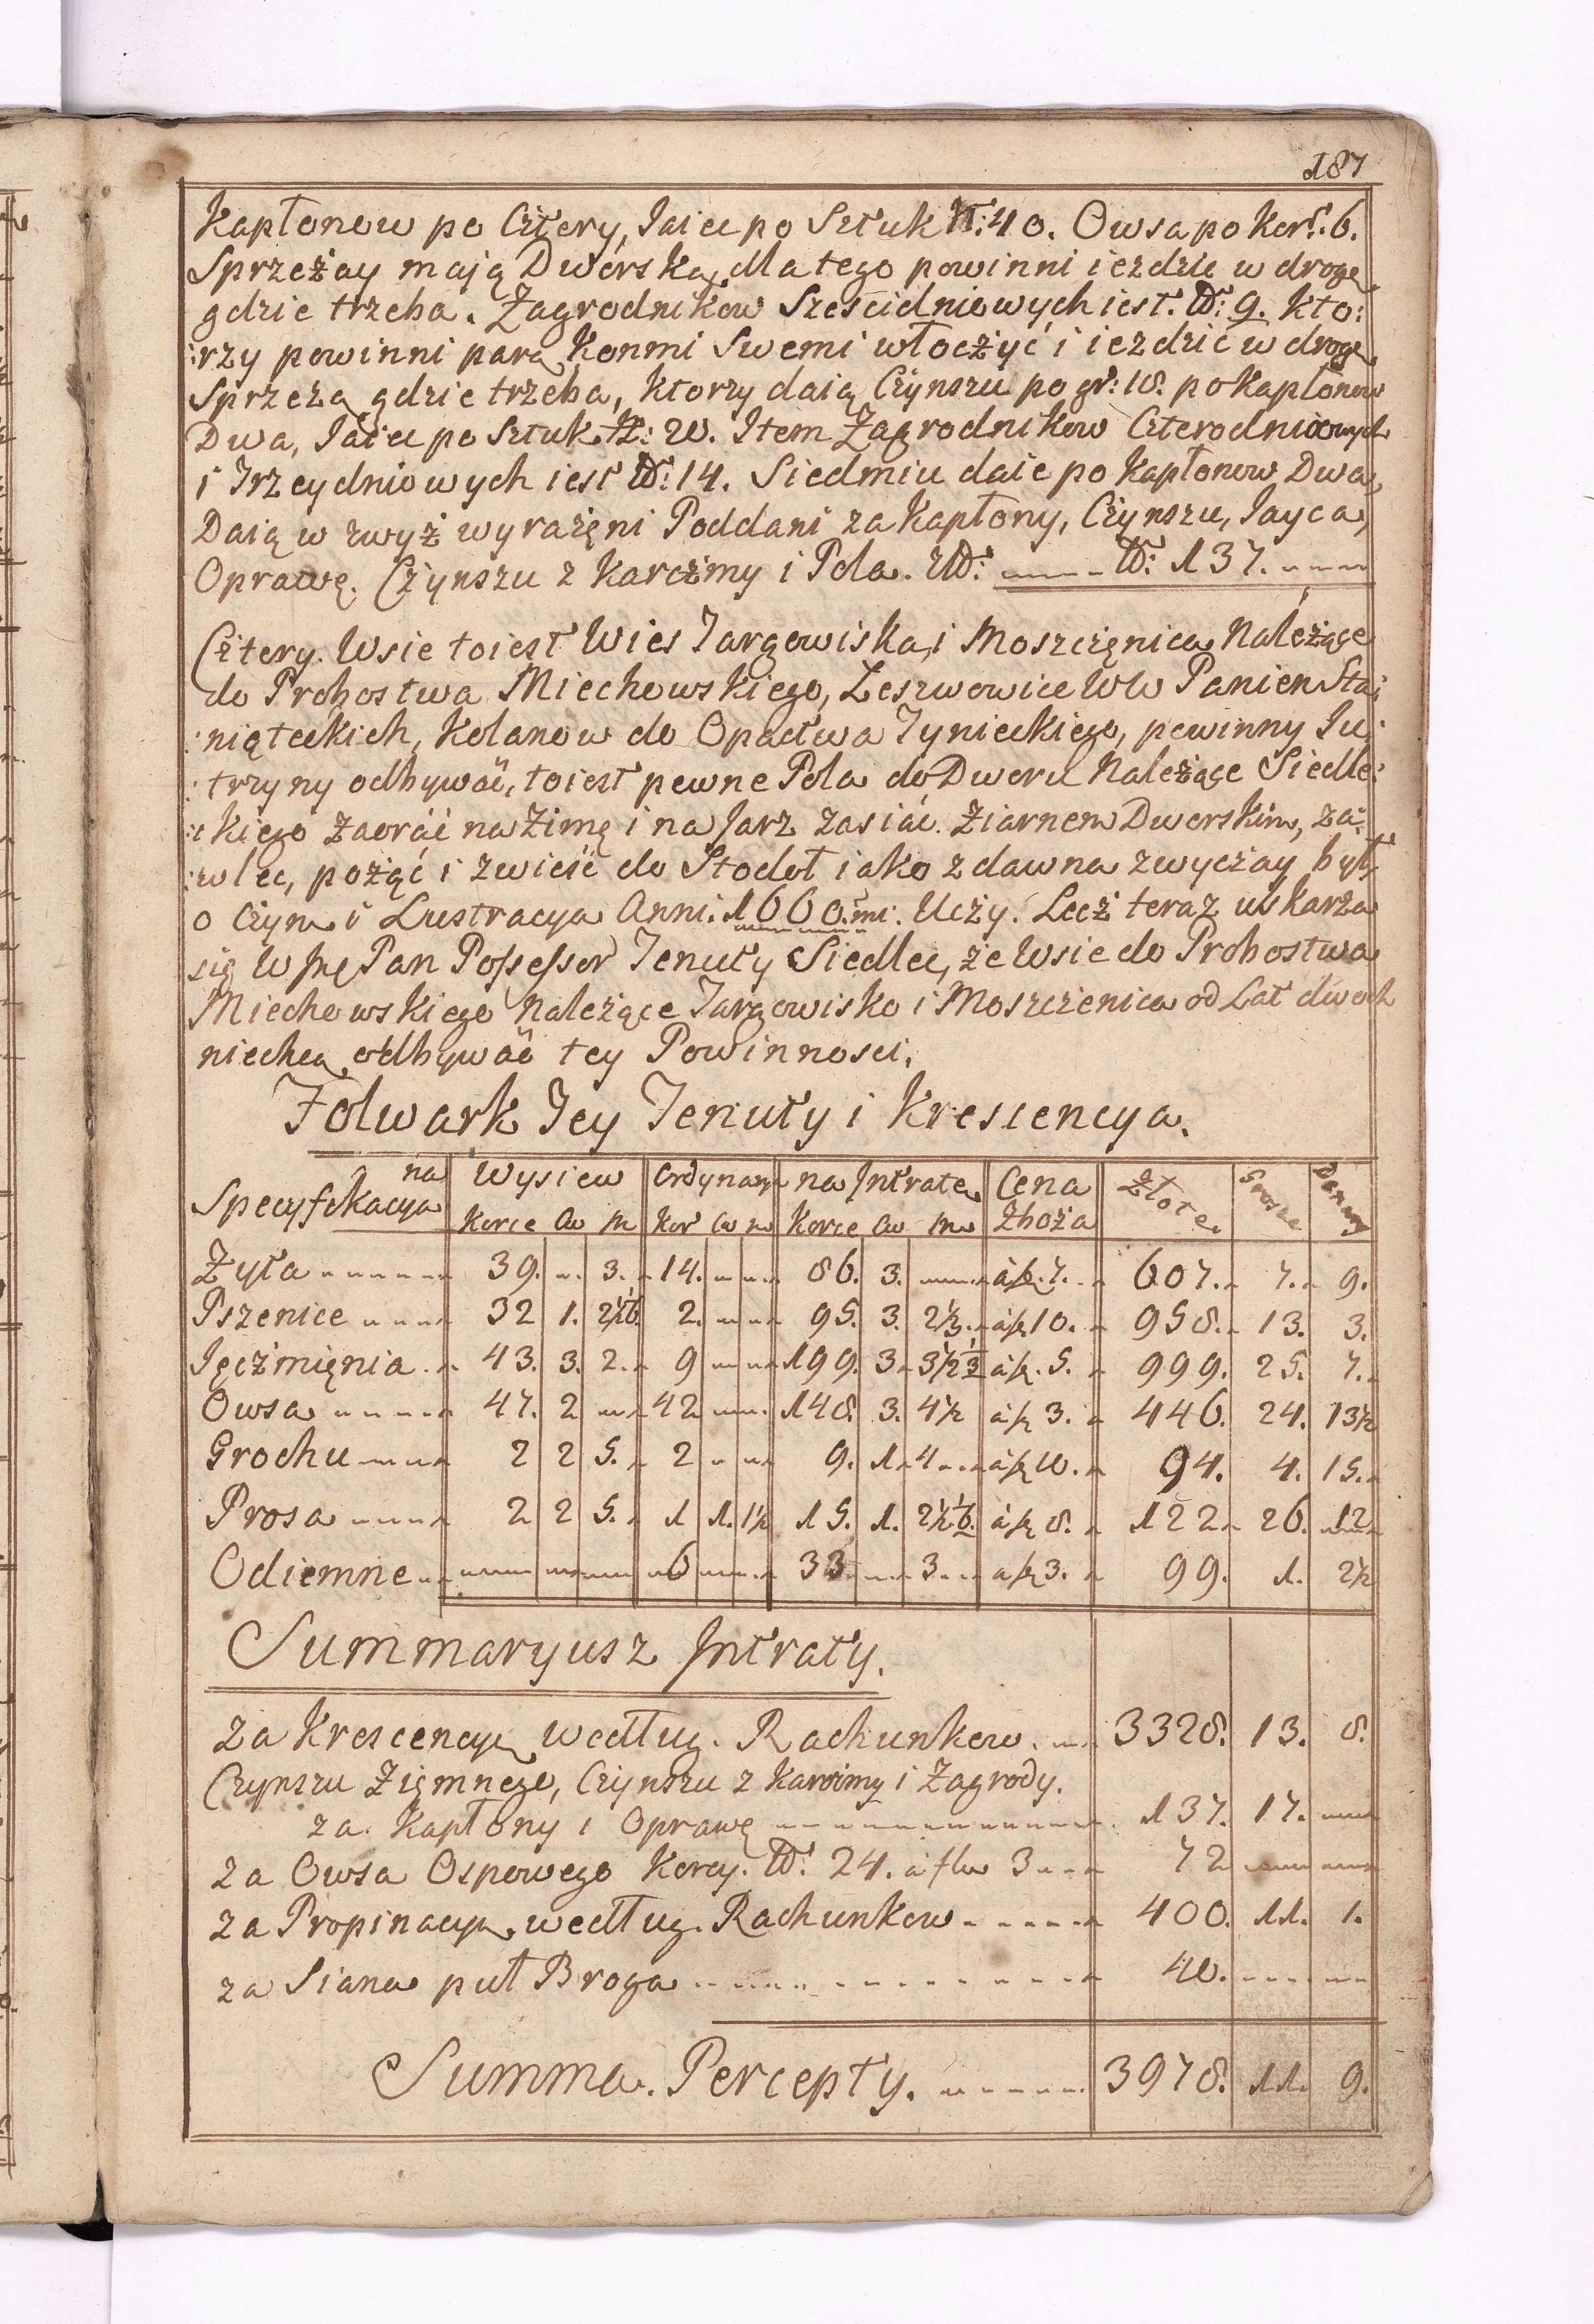 187
Kapłonow po Cztery, Jaiec po Sztuk N: 40. Owsa po Kor: 6.
Sprzeżay mają Dworską, dla tego powinni iezdzic w drogę
gdzie trzeba. Zagrodnikow Sześcidniowych iest. N: 9. kto:
:rzy powinni parą Konmi Swemi włoczyć i iezdzić w drogę
Sprzeżą gdzie trzeba, ktorzy daią Czynszu po gr: 18. po Kapłonow
Dwa, Jaiec po Sztuk N: 20. Item Zagrodnikow Czterodniowych
i Trzeydniowych iest N: 14. Siedmiu daie po Kapłonow Dwa,
Daią w zwyż wyrażęni Poddani za Kapłony, Czynszu, Jayca,
Oprawę. Czynszu z Karczmy i Pola. N: 137.
Cztery. Wsie toiest Wies Targowiska, i Moszczęnica Należące
do Probostwa Miechowskiego, Leszwowice WW Panien Sta:
:niąteckich, Kolanow do Opactwa Tynieckiego, powinny Ju:
:trzyny odbywać, toiest pewne Pola do Dworu Należące Siedle:
:ckiego zaoráć na Zimę i na Jarz zasiáć. Ziarnem Dworskim, za:
:wlec, pożąć i zwieść do Stodoł iako zdawna zwyczay był,
o czym i Lustracya Anni. 1660.mi. Uczy. Lecz teraz uskarza
się WJmę Pan Possessor Tenuty Siedlec, że Wsie do Probostwa
Miechowskiego Należące Targowisko i Moszczenica od Lat dwoch
niechcą odbywać tey Powinnosci.
Folwark Jey Tenuty i Krescencya.
na Wysiew Ordynary na Jntratę Cena Złote Grosze Denary
Specyfikacya Korce Cw M Kor Cw M Korce Cw M Zboża
Zyta 39. 3. 14. 86. 3. à fl. 7. 607. 7. 9.
Pszenice 32 1. 2 1/2 6. 2. 95. 3. 2 1/3. à fl. 10. 958. 13. 3.
Jęczmięnia 43. 3. 2. 9 199. 3 3 1/2 3 à fl. 5. 999. 25. 7.
Owsa 47. 2 42 148. 3. 4 1/2 à fl 3. 446. 24. 13 1/2
Grochu 2 2 5. 2 9. 1 4 à fl 10. 94. 4. 15.
Prosa 2 2 5. 1 1. 1 1/2 15. 1. 2 1/2 6. à fl 8. 122 26. 12
Odiemne 6 33 3 à fl 3. 99. 1. 2 1/2
Summaryusz Jntraty.
za Krescencyę według. Rachunkow. 3328. 13. 8.
Czynszu Ziemnego, Czynszu z Karczmy i Zagrody.
za Kapłony i Oprawę 137. 17.
za Owsa Ospowego Korcy. N: 24. à flor 3 72
za Propinacyę według. Rachunkow 400. 11. 1.
za Siana puł Broga 40.
Summa. Percepty. 3978. 11. 9.